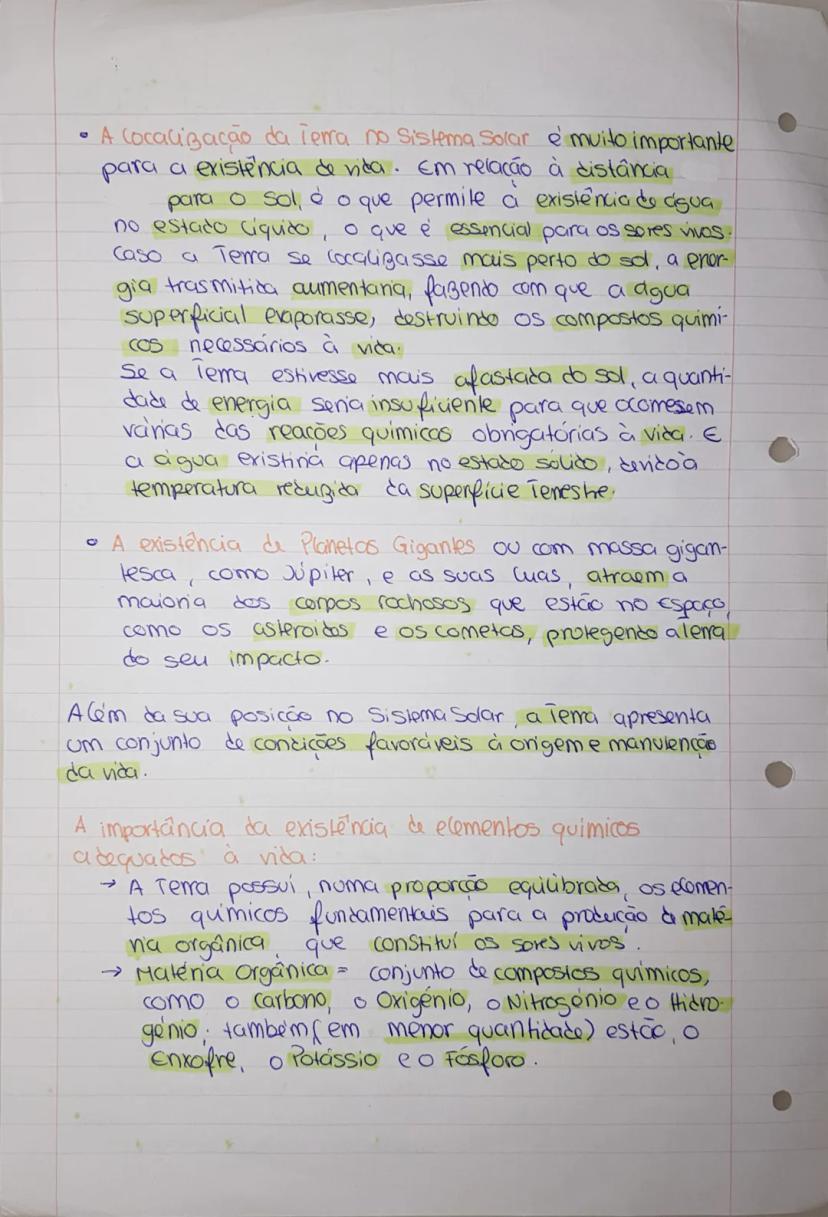 • A localização da Terra no Sistema Solar é muito importante
para a existência de vida. Em relação à distância
para o sol, é o que permite a existência de água
no estado líquido, o que é essencial para os seres vivos.
Caso a Terra se localizasse mais perto do sol, a ener-
gia trasmitida aumentaria, fazendo com que a água
superficial evaporasse, destruindo os compostos quími-
cos necessários à vida.
Se a Terra estivesse mais afastada do sol, a quanti-
dade de energia seria insuficiente para que ocorressem
várias das reações químicas obrigatórias à vida. E
a água existiria apenas no estado sólido, devido à
temperatura reduzida da superfície Terrestre.
• A existência de Planetas Gigantes ou com massa gigan-
tesca, como Júpiter, e as suas luas, atraem a
maioria dos corpos rochosos que estão no Espaço,
como os asteroides e os cometas, protegendo a Terra
do seu impacto.
Além da sua posição no Sistema Solar, a Terra apresenta
um conjunto de condições favoráveis à origem e manutenção
da vida.
A importância da existência de elementos químicos
adequados à vida:
→ A Terra possui, numa proporção equilibrada, os elemen-
tos químicos fundamentais para a produção de maté-
ria orgânica, que constituí os seres vivos.
→ Matéria Orgânica = conjunto de compostos químicos,
como o carbono, o Oxigénio, o Nitrogénio e o Hidro-
génio; também (em menor quantidade) estão, o
Enxofre, o Potássio e o Fósforo.